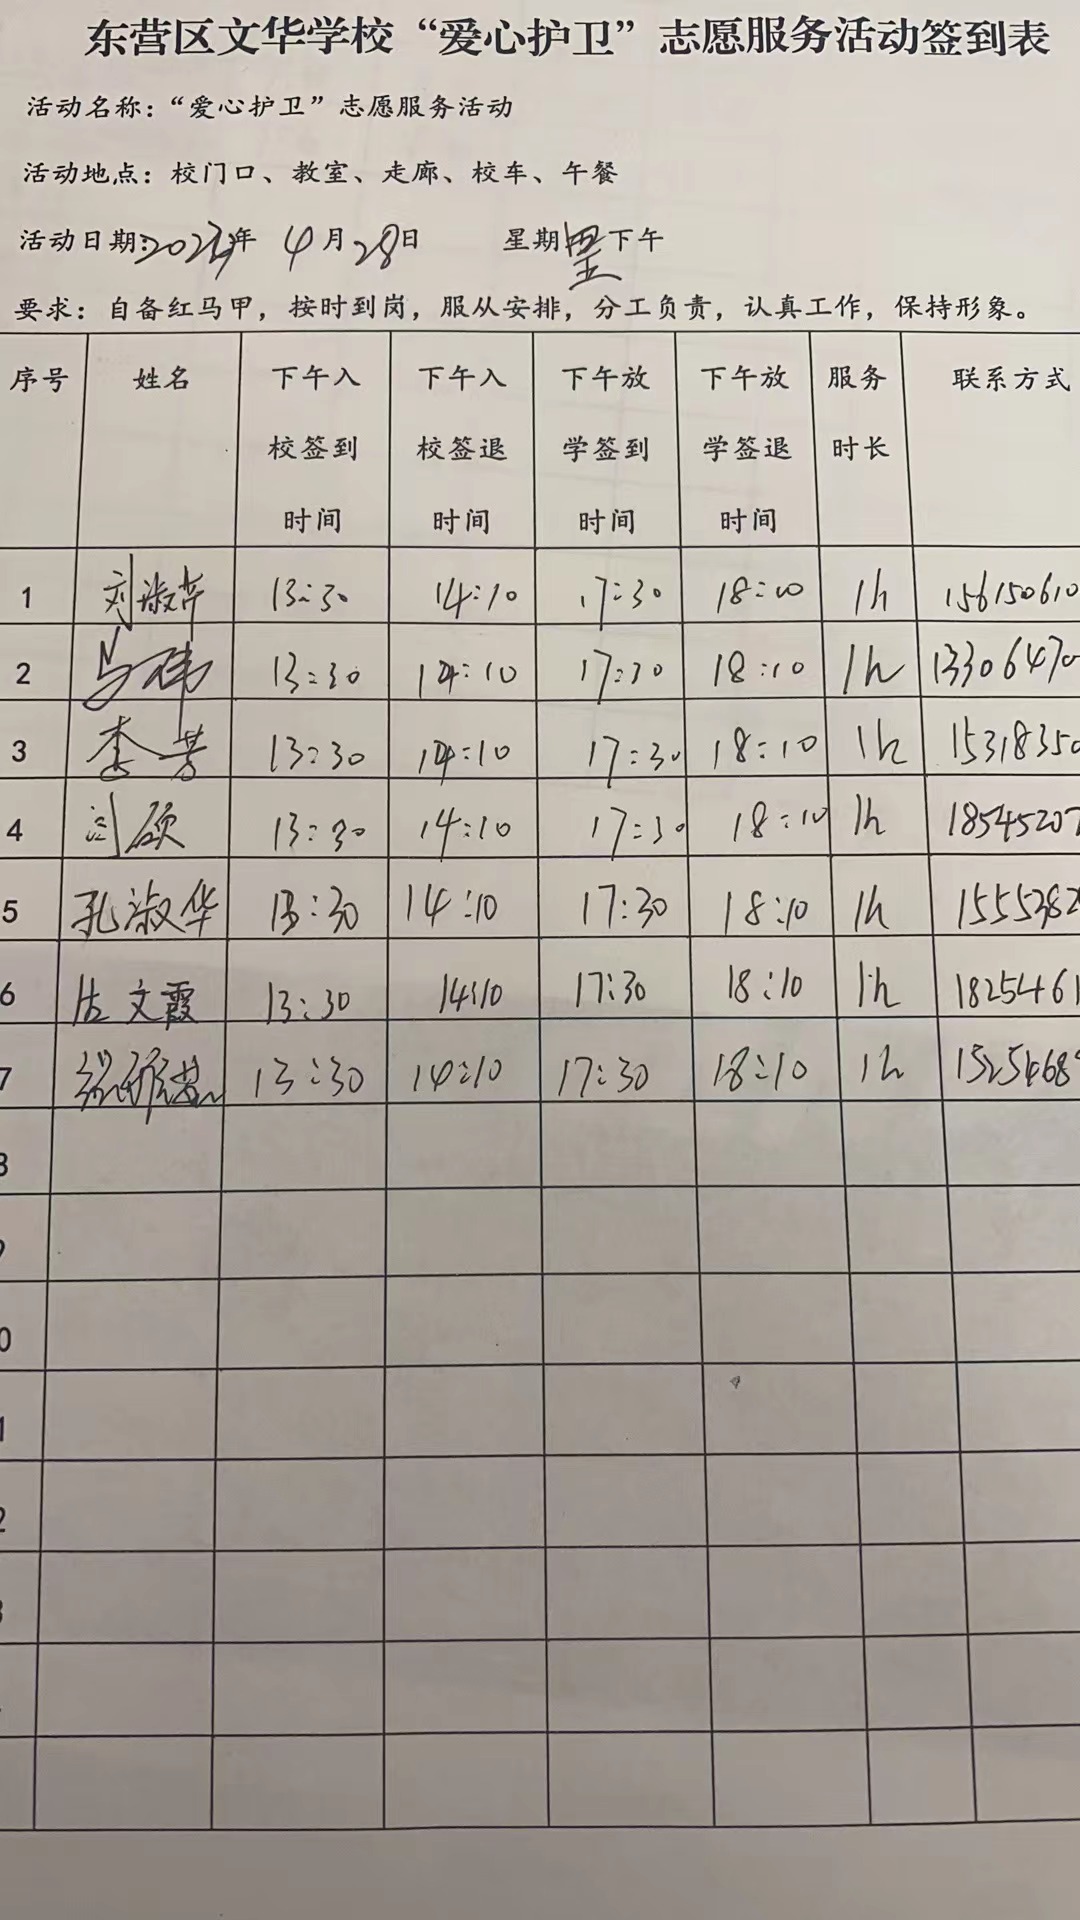 东营区文华学校“爱心护卫”志愿服务活动签到表
活动名称：“爱心护卫”志愿服务活动
活动地点：校门口、教室、走廊、校车、午餐
活动日期：2023年 4月28日 星期五下午
要求：自备红马甲，按时到岗，服从安排，分工负责，认真工作，保持形象。
序号 姓名 下午入校签到时间 下午入校签退时间 下午放学签到时间 下午放学签退时间 服务时长 联系方式
1 刘淑芹 13:30 14:10 17:30 18:00 1h 156150610
2 马伟 13:30 14:10 17:30 18:10 1h 13306470
3 李芳 13:30 14:10 17:30 18:10 1h 15318350
4 闫硕 13:30 14:10 17:30 18:10 1h 18545207
5 孔淑华 13:30 14:10 17:30 18:10 1h 1555382
6 文霞 13:30 14:10 17:30 18:10 1h 18254461
7 13:30 14:10 17:30 18:10 1h 15254689